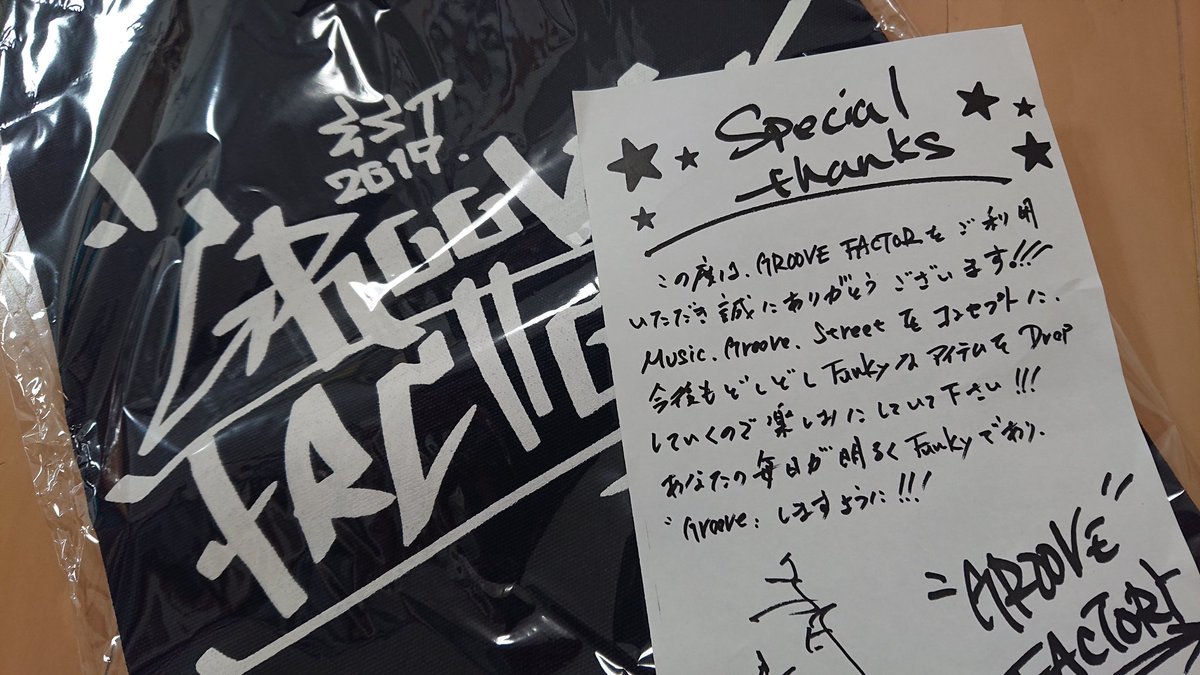 EST
2019.
GROOV
FACTO
Special
thanks
この度は、GROOVE FACTORをご利用
いただき誠にありがとうございます!!!
Music、Groove、Streetをコンセプトに、
今後もどしどしFunkyなアイテムをDrop
していくので楽しみにしていて下さい!!!
あなたの毎日が明るくFunkyであり、
"Groove" しますように!!!
GROOVE
FACTORY